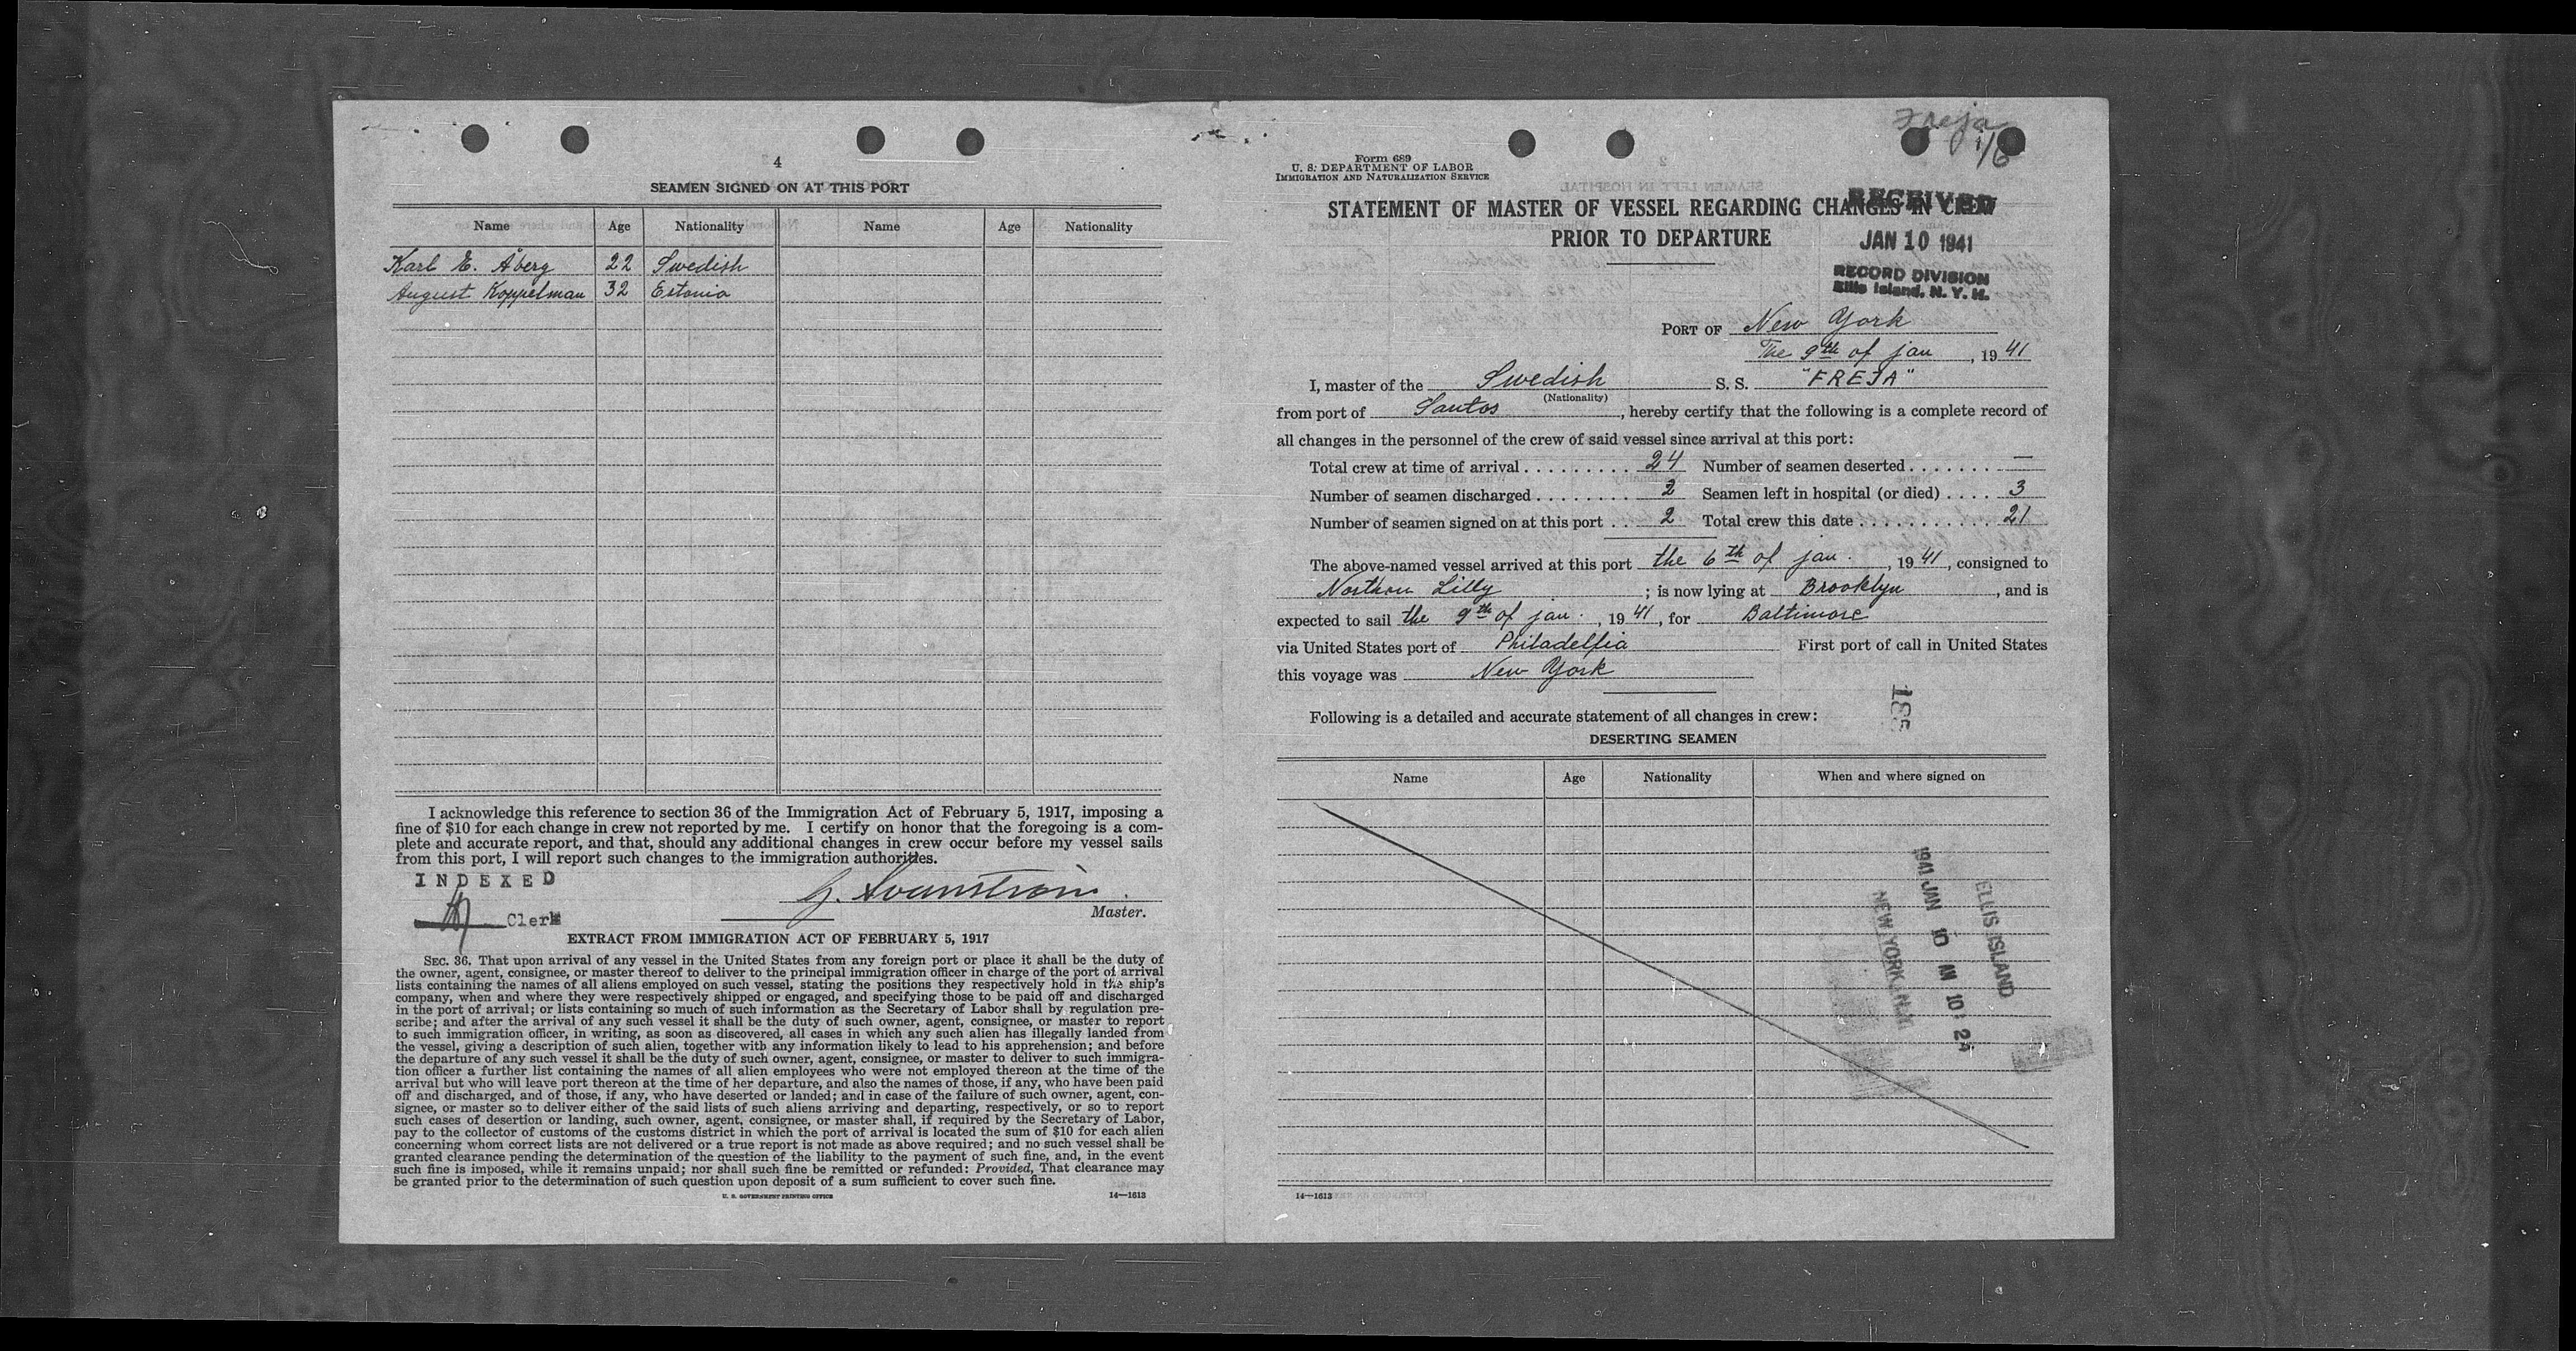 4
SEAMEN SIGNED ON AT THIS PORT
Name Age Nationality Name Age Nationality
Karl E. Åberg 22 Swedish
August Koppelman 32 Estonia
I acknowledge this reference to section 36 of the Immigration Act of February 5, 1917, imposing a
fine of $10 for each change in crew not reported by me. I certify on honor that the foregoing is a com-
plete and accurate report, and that, should any additional changes in crew occur before my vessel sails
from this port, I will report such changes to the immigration authorities.
INDEXED
Clerk
Master.
EXTRACT FROM IMMIGRATION ACT OF FEBRUARY 5, 1917
SEC. 36. That upon arrival of any vessel in the United States from any foreign port or place it shall be the duty of
the owner, agent, consignee, or master thereof to deliver to the principal immigration officer in charge of the port of arrival
lists containing the names of all aliens employed on such vessel, stating the positions they respectively hold in the ship's
company, when and where they were respectively shipped or engaged, and specifying those to be paid off and discharged
in the port of arrival; or lists containing so much of such information as the Secretary of Labor shall by regulation pre-
scribe; and after the arrival of any such vessel it shall be the duty of such owner, agent, consignee, or master to report
to such immigration officer, in writing, as soon as discovered, all cases in which any such alien has illegally landed from
the vessel, giving a description of such alien, together with any information likely to lead to his apprehension; and before
the departure of any such vessel it shall be the duty of such owner, agent, consignee, or master to deliver to such immigra-
tion officer a further list containing the names of all alien employees who were not employed thereon at the time of the
arrival but who will leave port thereon at the time of her departure, and also the names of those, if any, who have been paid
off and discharged, and of those, if any, who have deserted or landed; and in case of the failure of such owner, agent, con-
signee, or master so to deliver either of the said lists of such aliens arriving and departing, respectively, or so to report
such cases of desertion or landing, such owner, agent, consignee, or master shall, if required by the Secretary of Labor,
pay to the collector of customs of the customs district in which the port of arrival is located the sum of $10 for each alien
concerning whom correct lists are not delivered or a true report is not made as above required; and no such vessel shall be
granted clearance pending the determination of the question of the liability to the payment of such fine, and, in the event
such fine is imposed, while it remains unpaid; nor shall such fine be remitted or refunded: Provided, That clearance may
be granted prior to the determination of such question upon deposit of a sum sufficient to cover such fine.
U. S. GOVERNMENT PRINTING OFFICE 14—1613
Freja
1/6
Form 689
U. S. DEPARTMENT OF LABOR
IMMIGRATION AND NATURALIZATION SERVICE
STATEMENT OF MASTER OF VESSEL REGARDING CHANGES IN CREW
PRIOR TO DEPARTURE
RECEIVED
JAN 10 1941
RECORD DIVISION
Ellis Island, N. Y. H.
PORT OF New York
The 9th of jan, 1941
I, master of the Swedish S. S. "FREJA"
(Nationality)
from port of Santos, hereby certify that the following is a complete record of
all changes in the personnel of the crew of said vessel since arrival at this port:
Total crew at time of arrival . . . . . . . . . 24 Number of seamen deserted . . . . . . . —
Number of seamen discharged . . . . . . . . 2 Seamen left in hospital (or died) . . . . 3
Number of seamen signed on at this port . . 2 Total crew this date . . . . . . . . . . . 21
The above-named vessel arrived at this port the 6th of jan., 1941, consigned to
Northon Lilly; is now lying at Brooklyn, and is
expected to sail the 9th of jan., 1941, for Baltimore
via United States port of Philadelfia First port of call in United States
this voyage was New York
Following is a detailed and accurate statement of all changes in crew:
DESERTING SEAMEN
Name Age Nationality When and where signed on
ELLIS ISLAND
1941 JAN 10 AM 10:24
14—1613